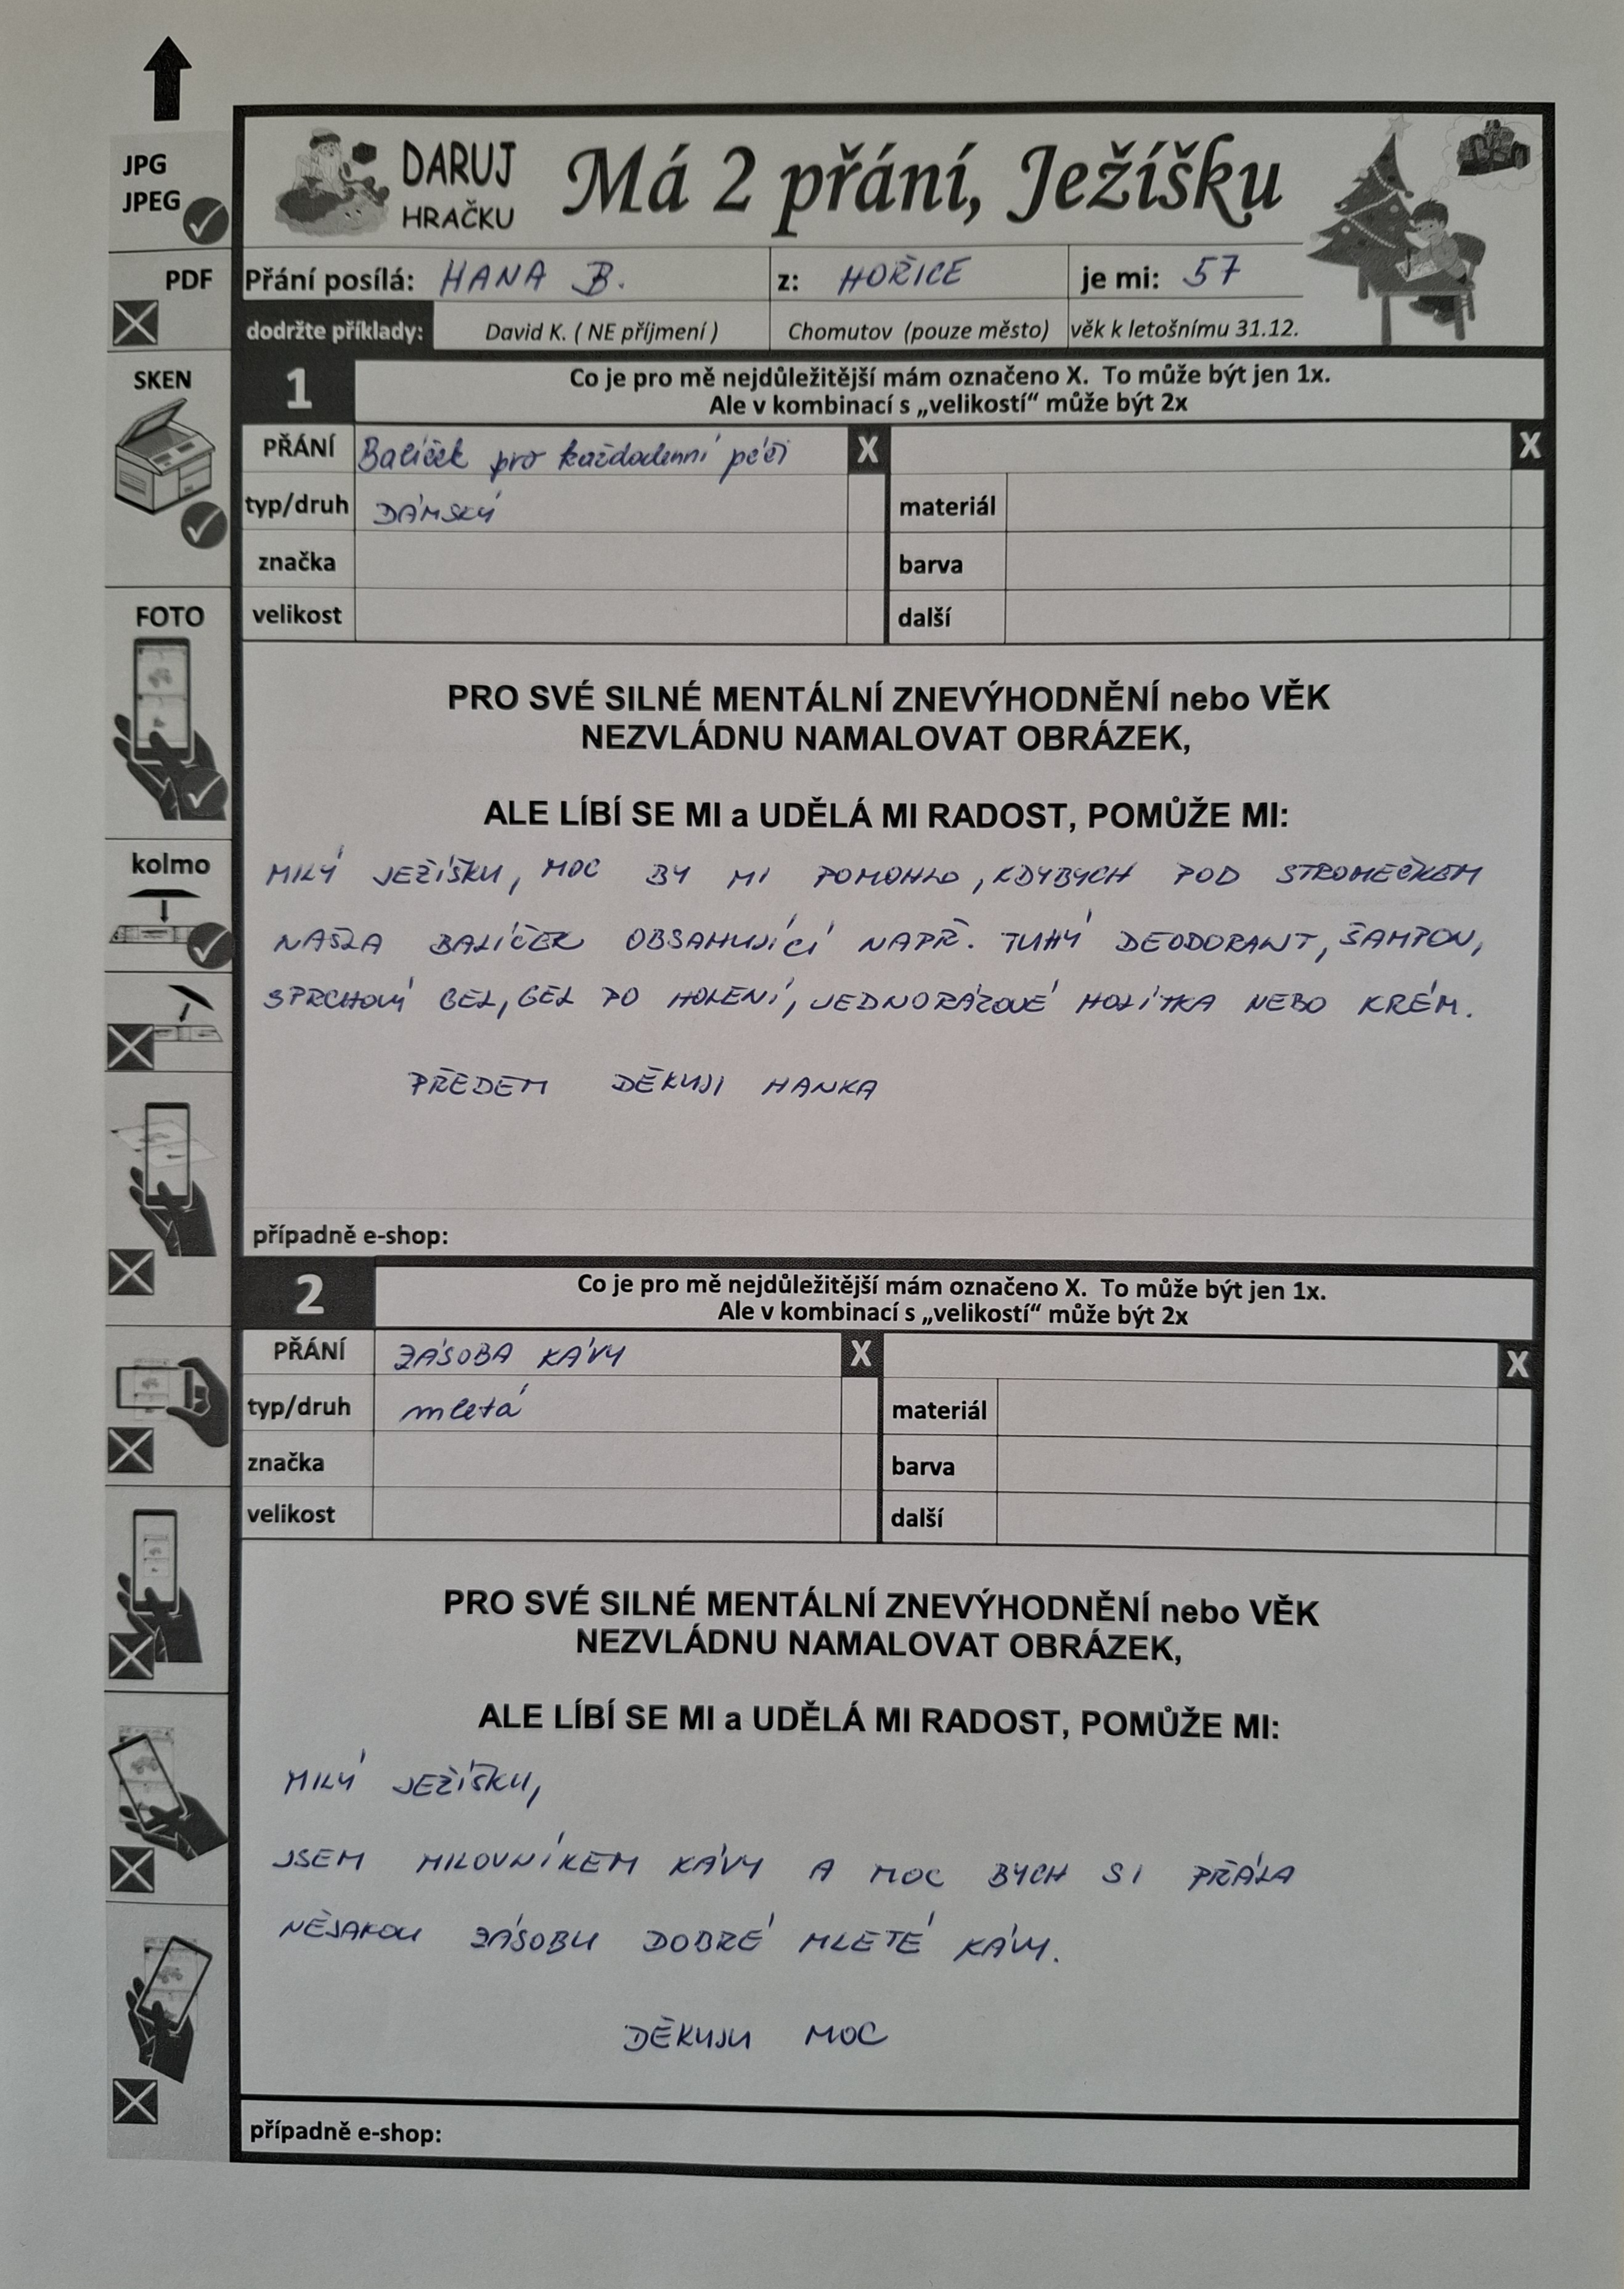 JPG
JPEG
DARUJ
HRAČKU
Má 2 přání, Ježíšku
PDF
Přání posílá: HANA B. z: HOŘICE je mi: 57
dodržte příklady: David K. ( NE příjmení ) Chomutov (pouze město) věk k letošnímu 31.12.
SKEN
1
Co je pro mě nejdůležitější mám označeno X. To může být jen 1x.
Ale v kombinací s „velikostí“ může být 2x
PŘÁNÍ Balíček pro každodenní péči X X
typ/druh DÁMSKÝ materiál
značka barva
velikost další
FOTO
PRO SVÉ SILNÉ MENTÁLNÍ ZNEVÝHODNĚNÍ nebo VĚK
NEZVLÁDNU NAMALOVAT OBRÁZEK,
ALE LÍBÍ SE MI a UDĚLÁ MI RADOST, POMŮŽE MI:
kolmo
MILÝ JEŽÍŠKU, MOC BY MI POMOHLO, KDYBYCH POD STROMEČKEM
NAŠLA BALÍČEK OBSAHUJÍCÍ NAPŘ. TUHÝ DEODORANT, ŠAMPON,
SPRCHOVÝ GEL, GEL PO HOLENÍ, JEDNORÁZOVÉ HOLÍTKA NEBO KRÉM.
PŘEDEM DĚKUJI HANKA
případně e-shop:
2
Co je pro mě nejdůležitější mám označeno X. To může být jen 1x.
Ale v kombinací s „velikostí“ může být 2x
PŘÁNÍ ZÁSOBA KÁVY X X
typ/druh mletá materiál
značka barva
velikost další
PRO SVÉ SILNÉ MENTÁLNÍ ZNEVÝHODNĚNÍ nebo VĚK
NEZVLÁDNU NAMALOVAT OBRÁZEK,
ALE LÍBÍ SE MI a UDĚLÁ MI RADOST, POMŮŽE MI:
MILÝ JEŽÍŠKU,
JSEM MILOVNÍKEM KÁVY A MOC BYCH SI PŘÁLA
NĚJAKOU ZÁSOBU DOBRÉ MLETÉ KÁVY.
DĚKUJU MOC
případně e-shop: